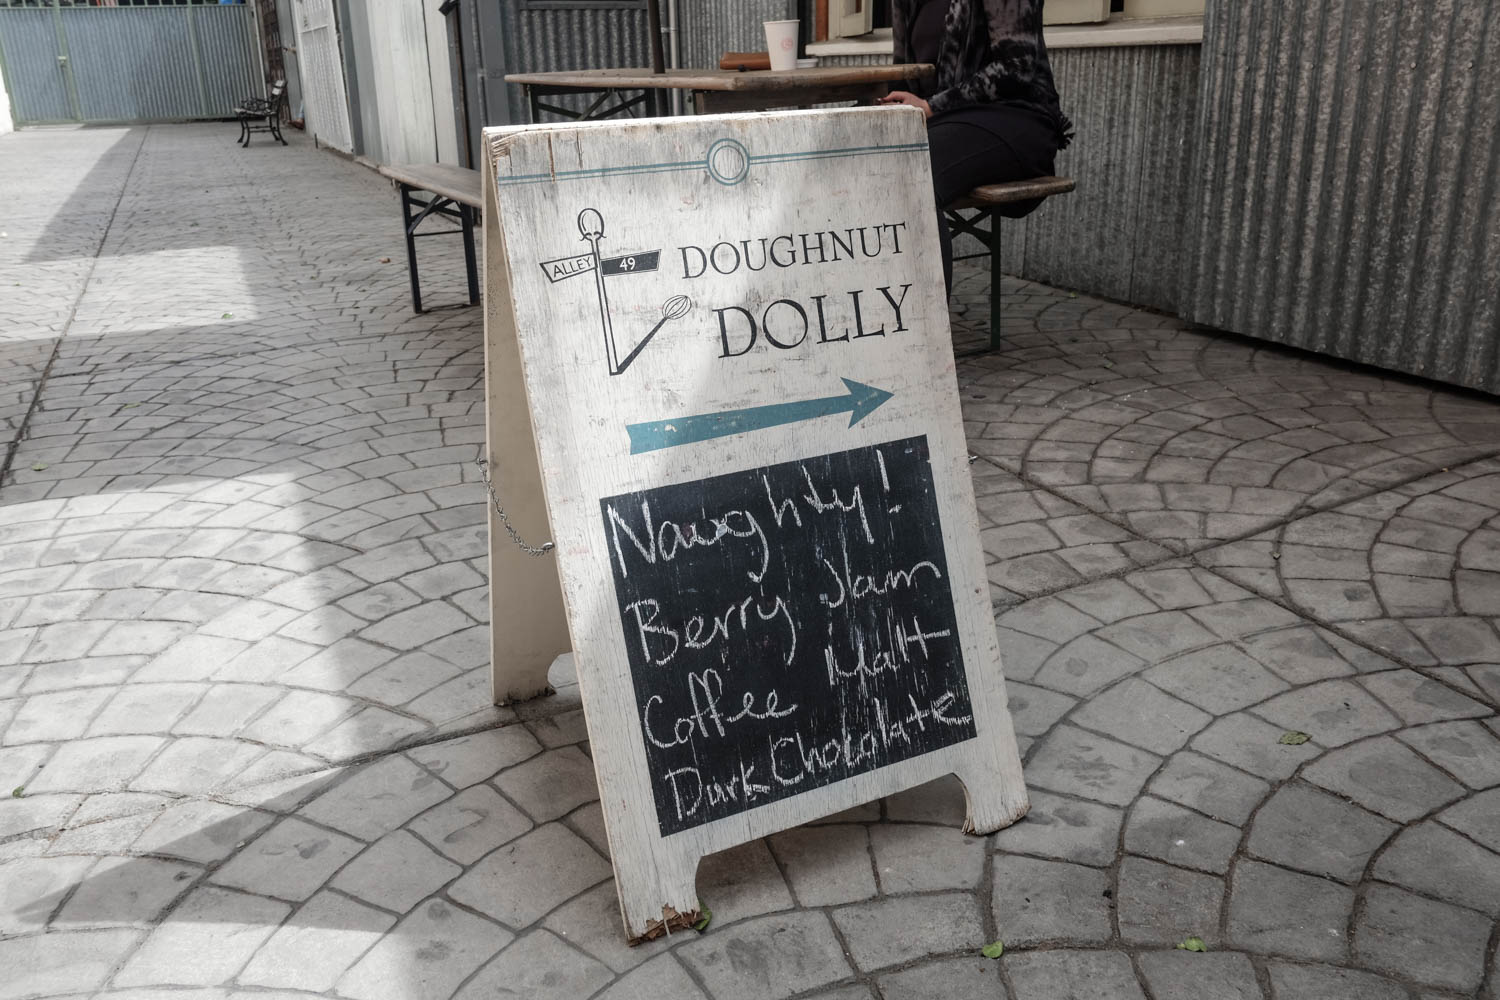 ALLEY 49
DOUGHNUT
DOLLY
Naughty!
Berry Jam
Coffee Malt
Dark Chocolate